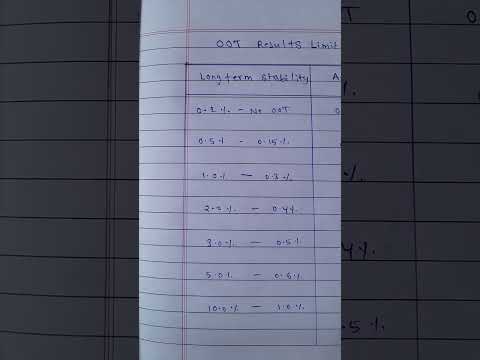 OOT Results Limit
Long term Stability A
0.2% - No OOT 0
0.5% - 0.15%
1.0% - 0.3%
2.0% - 0.4%
3.0% - 0.5%
5.0% - 0.6%
10.0% - 1.0%